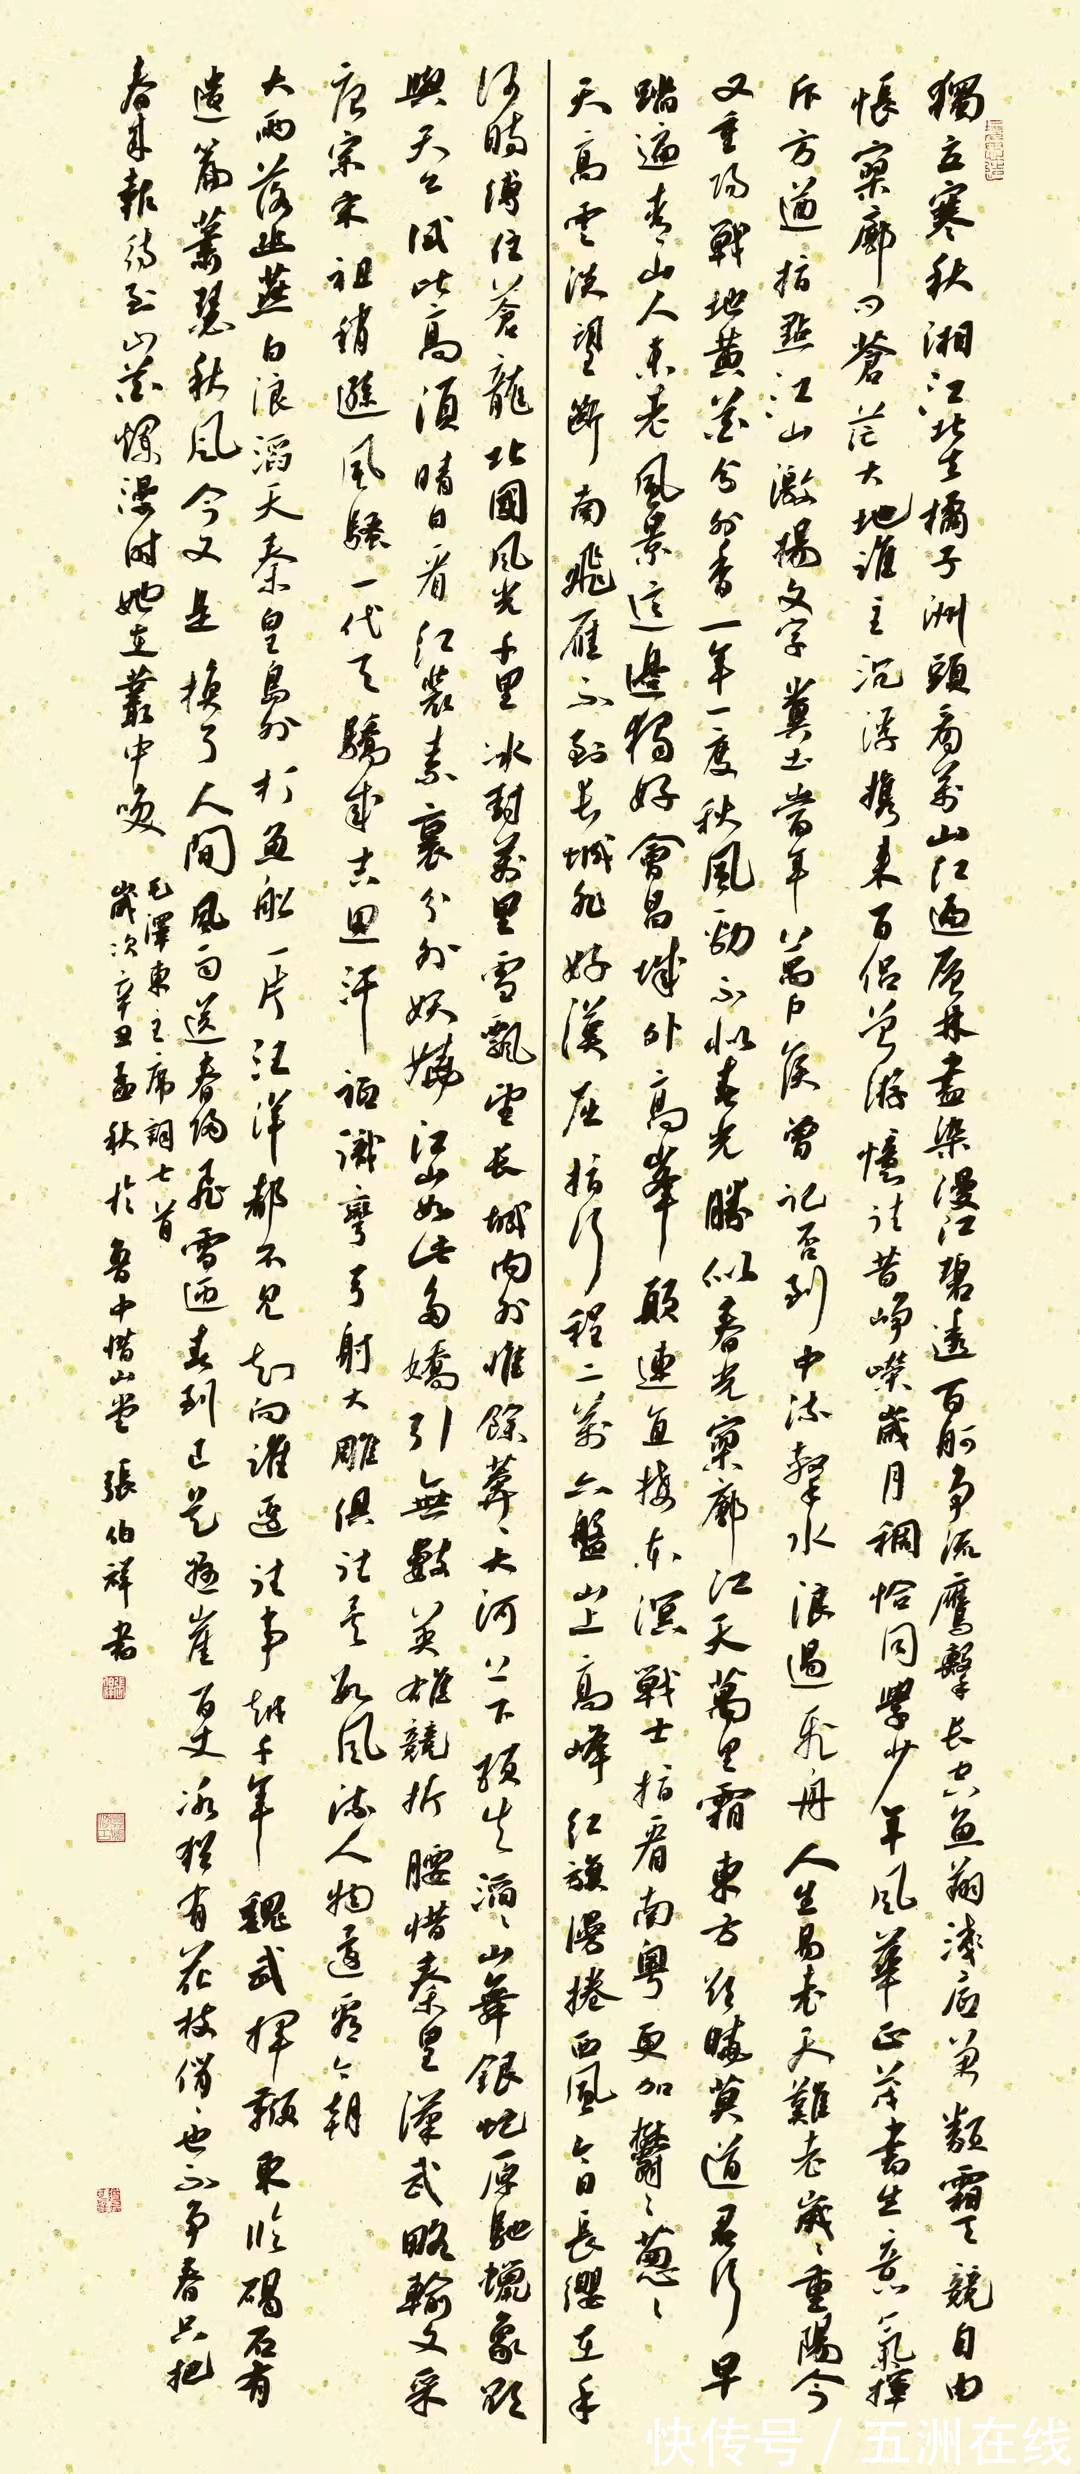 獨立寒秋湘江北去橘子洲頭看萬山紅遍層林盡染漫江碧透百舸争流鷹擊长空魚翔淺底萬類霜天競自由
悵寥廓问蒼茫大地誰主沉浮攜来百侣曾游憶往昔崢嶸歲月稠恰同學少年風華正茂書生意氣揮
斥方遒指點江山激揚文字糞土當年萬户侯曾記否到中流擊水浪遏飛舟人生易老天難老歲々重陽今
又重陽戰地黄花分外香一年一度秋風勁不似春光勝似春光寥廓江天萬里霜東方欲曉莫道君行早
踏遍青山人未老風景这邊獨好會昌城外高峯顛連直接東溟戰士指看南粤更加鬱々葱々
天高雲淡望斷南飛雁不到长城非好漢屈指行程二萬六盤山上高峰紅旗漫捲西風今日長纓在手
何時縛住蒼龍北國風光千里冰封萬里雪飄望长城内外惟餘莽々大河上下頓失滔々山舞銀蛇原馳蠟象欲
與天公試比高須晴日看红裝素裹分外妖嬈江山如此多嬌引無數英雄競折腰惜秦皇漢武略輸文采
唐宗宋祖稍遜風騷一代天驕成吉思汗衹識彎弓射大雕俱往矣數風流人物還看今朝
大雨落幽燕白浪滔天秦皇島外打魚船一片汪洋都不見知向誰邊往事越千年魏武揮鞭東臨碣石有
遺篇蕭瑟秋風今又是换了人間風雨送春歸飛雪迎春到已是懸崖百丈冰猶有花枝俏々也不争春只把
春来報待到山花爛漫时她在叢中笑
毛澤東主席詞七首
歲次辛丑孟秋於魯中惜山堂張伯祥書
快传号/五洲在线